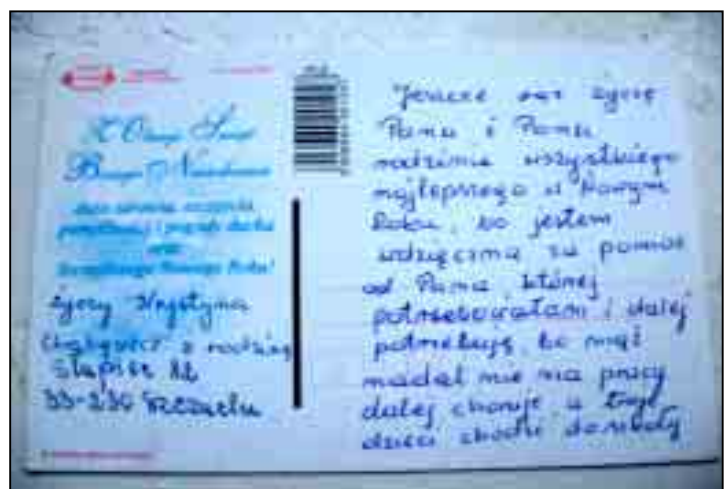 Z Okazji Świąt
Bożego Narodzenia
dużo zdrowia, szczęścia
pomyślności i pogody ducha
oraz
Szczęśliwego Nowego Roku!
życzy Krystyna
z rodziną
Słupiec
33-230 Szczucin
Jeszcze raz życzę
Panu i Pana
rodzinie wszystkiego
najlepszego w Nowym
Roku, bo jestem
wdzięczna za pomoc
od Pana której
potrzebowałam i dalej
potrzebuję, bo mąż
nadal nie ma pracy
dalej choruje, a troje
dzieci chodzi do szkoły